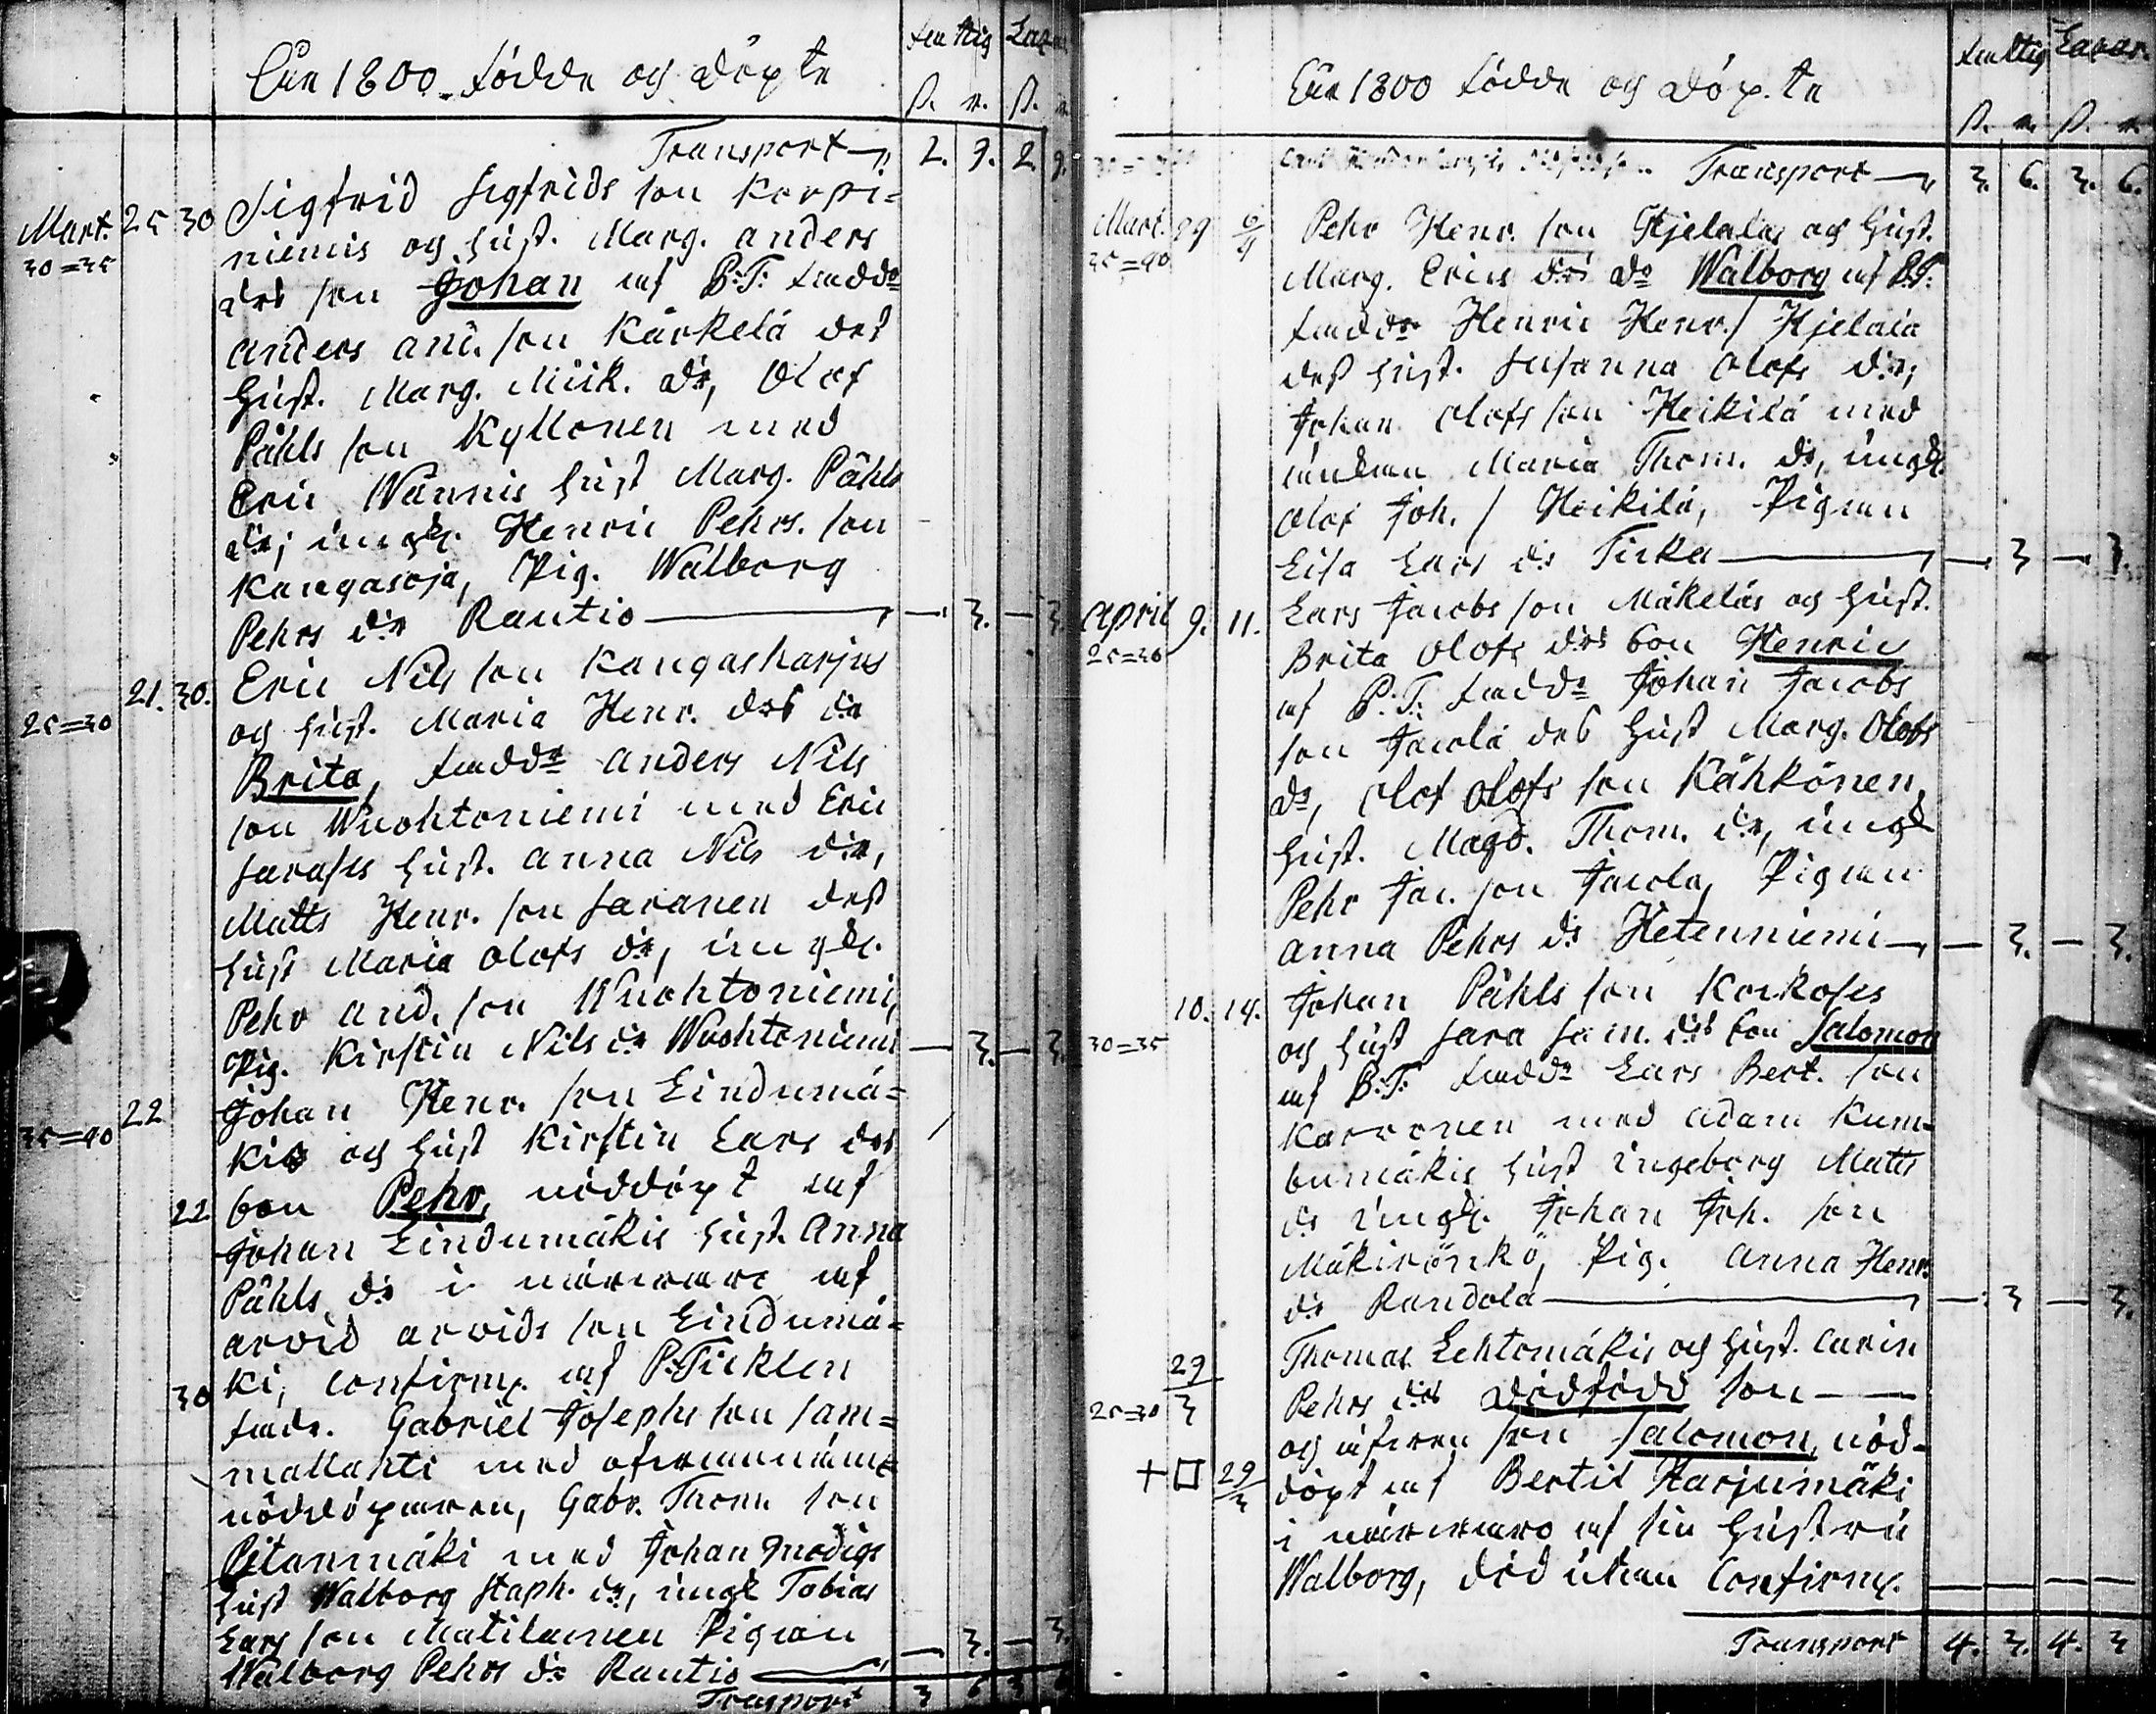 År 1800. Födde och Döpte
ß. r. ß. r.
Transport 2. 9. 2. 9.
Mart. 25 30 Sigfrid Sigfrids son Karpi-
30=35 niemis och hust. Marg. Anders
drs son Johan af P:T: faddr
Anders And. son Kärkelä des
hust. Marg. Mick. dr, Olof
Påhls son Kyllönen med
Eric Wännis hust Marg. Påhls
dr; ungk. Henric Pehrs. son
Kangasoja, Pig. Walborg
Pehrs dr Rautio — 3. — 3.
21. 30. Eric Nils son Kangasharjus
25=30 och hust. Maria Henr. drs dr
Brita, faddr Anders Nils
son Wuohtoniemi med Eric
Sarases hust. Anna Nils dr,
Matts Henr. son Saranen dess
hust Maria Olofs dr, ungk.
Pehr And. son Wuohtoniemi,
Pig. Kirstin Nils dr Wuohtoniemi — 3. — 3.
22 Johan Henr. son Lindumä-
35=40 kis och hust Kirstin Lars drs
22 son Pehr, nöddöpt af
Johan Lindumäkis hust. Anna
Påhls dr i närvaro af
Arvid Arvids son Lindumä-
30 ki, confirm. af P. Ticklen
fadr. Gabriel Josephs son Sam-
mallahti med ofvannämnde
nöddöperskan, Gabr. Thom. son
Pitanmäki med Johan Modigs
hust Walborg Staph. dr, ungk Tobias
Lars son Matilainen Pigan — 3. — 3.
Walborg Pehrs dr Rautio
Transport 3 6 3 6
År 1800 Födde och Döpte
ß. r. ß. r.
Transport 3. 6. 3. 6.
Mart. 29 6/4 Pehr Henr. son Hjelalas och hust.
35=40 Marg. Erics drs dr Walborg af P.T.
faddr Henric Henr. s Hjelala
dess hust. Susanna Olofs dr;
Johan Olofs son Heikilä med
Maria Thom. dr, ungk.
Olof Joh. s Heikilä, Pigan
Lisa Lars dr Tirka — 3 — 3.
April 9. 11. Lars Jacobs son Mäkeläs och hust.
25=30 Brita Olofs drs son Henric
af P.T: faddr Johan Jacobs
son Jacola des hust Marg. Olofs
dr, Olof Olofs son Kähkönen,
hust. Magd. Thom. dr, ungk
Pehr Jac. son Jacola, Pigan
Anna Pehrs dr Hetenniemi — 3. — 3.
10. 14. Johan Påhls son Korkoses
30=35 och hust Sara Sam. drs son Salomon
af P:T: faddr Lars Bert. son
Karvonen med Adam Kum-
bumäkis hust Ingeborg Matts
dr ungk. Johan Joh. son
Mäkirönkö, Pig. Anna Henr.
dr Randola — 3 — 3.
29/3 Thomas Lehtomäkis och hust. Carin
25=30 Pehrs drs Dödfödd son —
och son Salomon, nöd-
+ □ 29/3 döpt af Bertil Harjumäki
i närvaro af sin hustru
Walborg, död utan Confirm.
Transport 4. 3. 4. 3